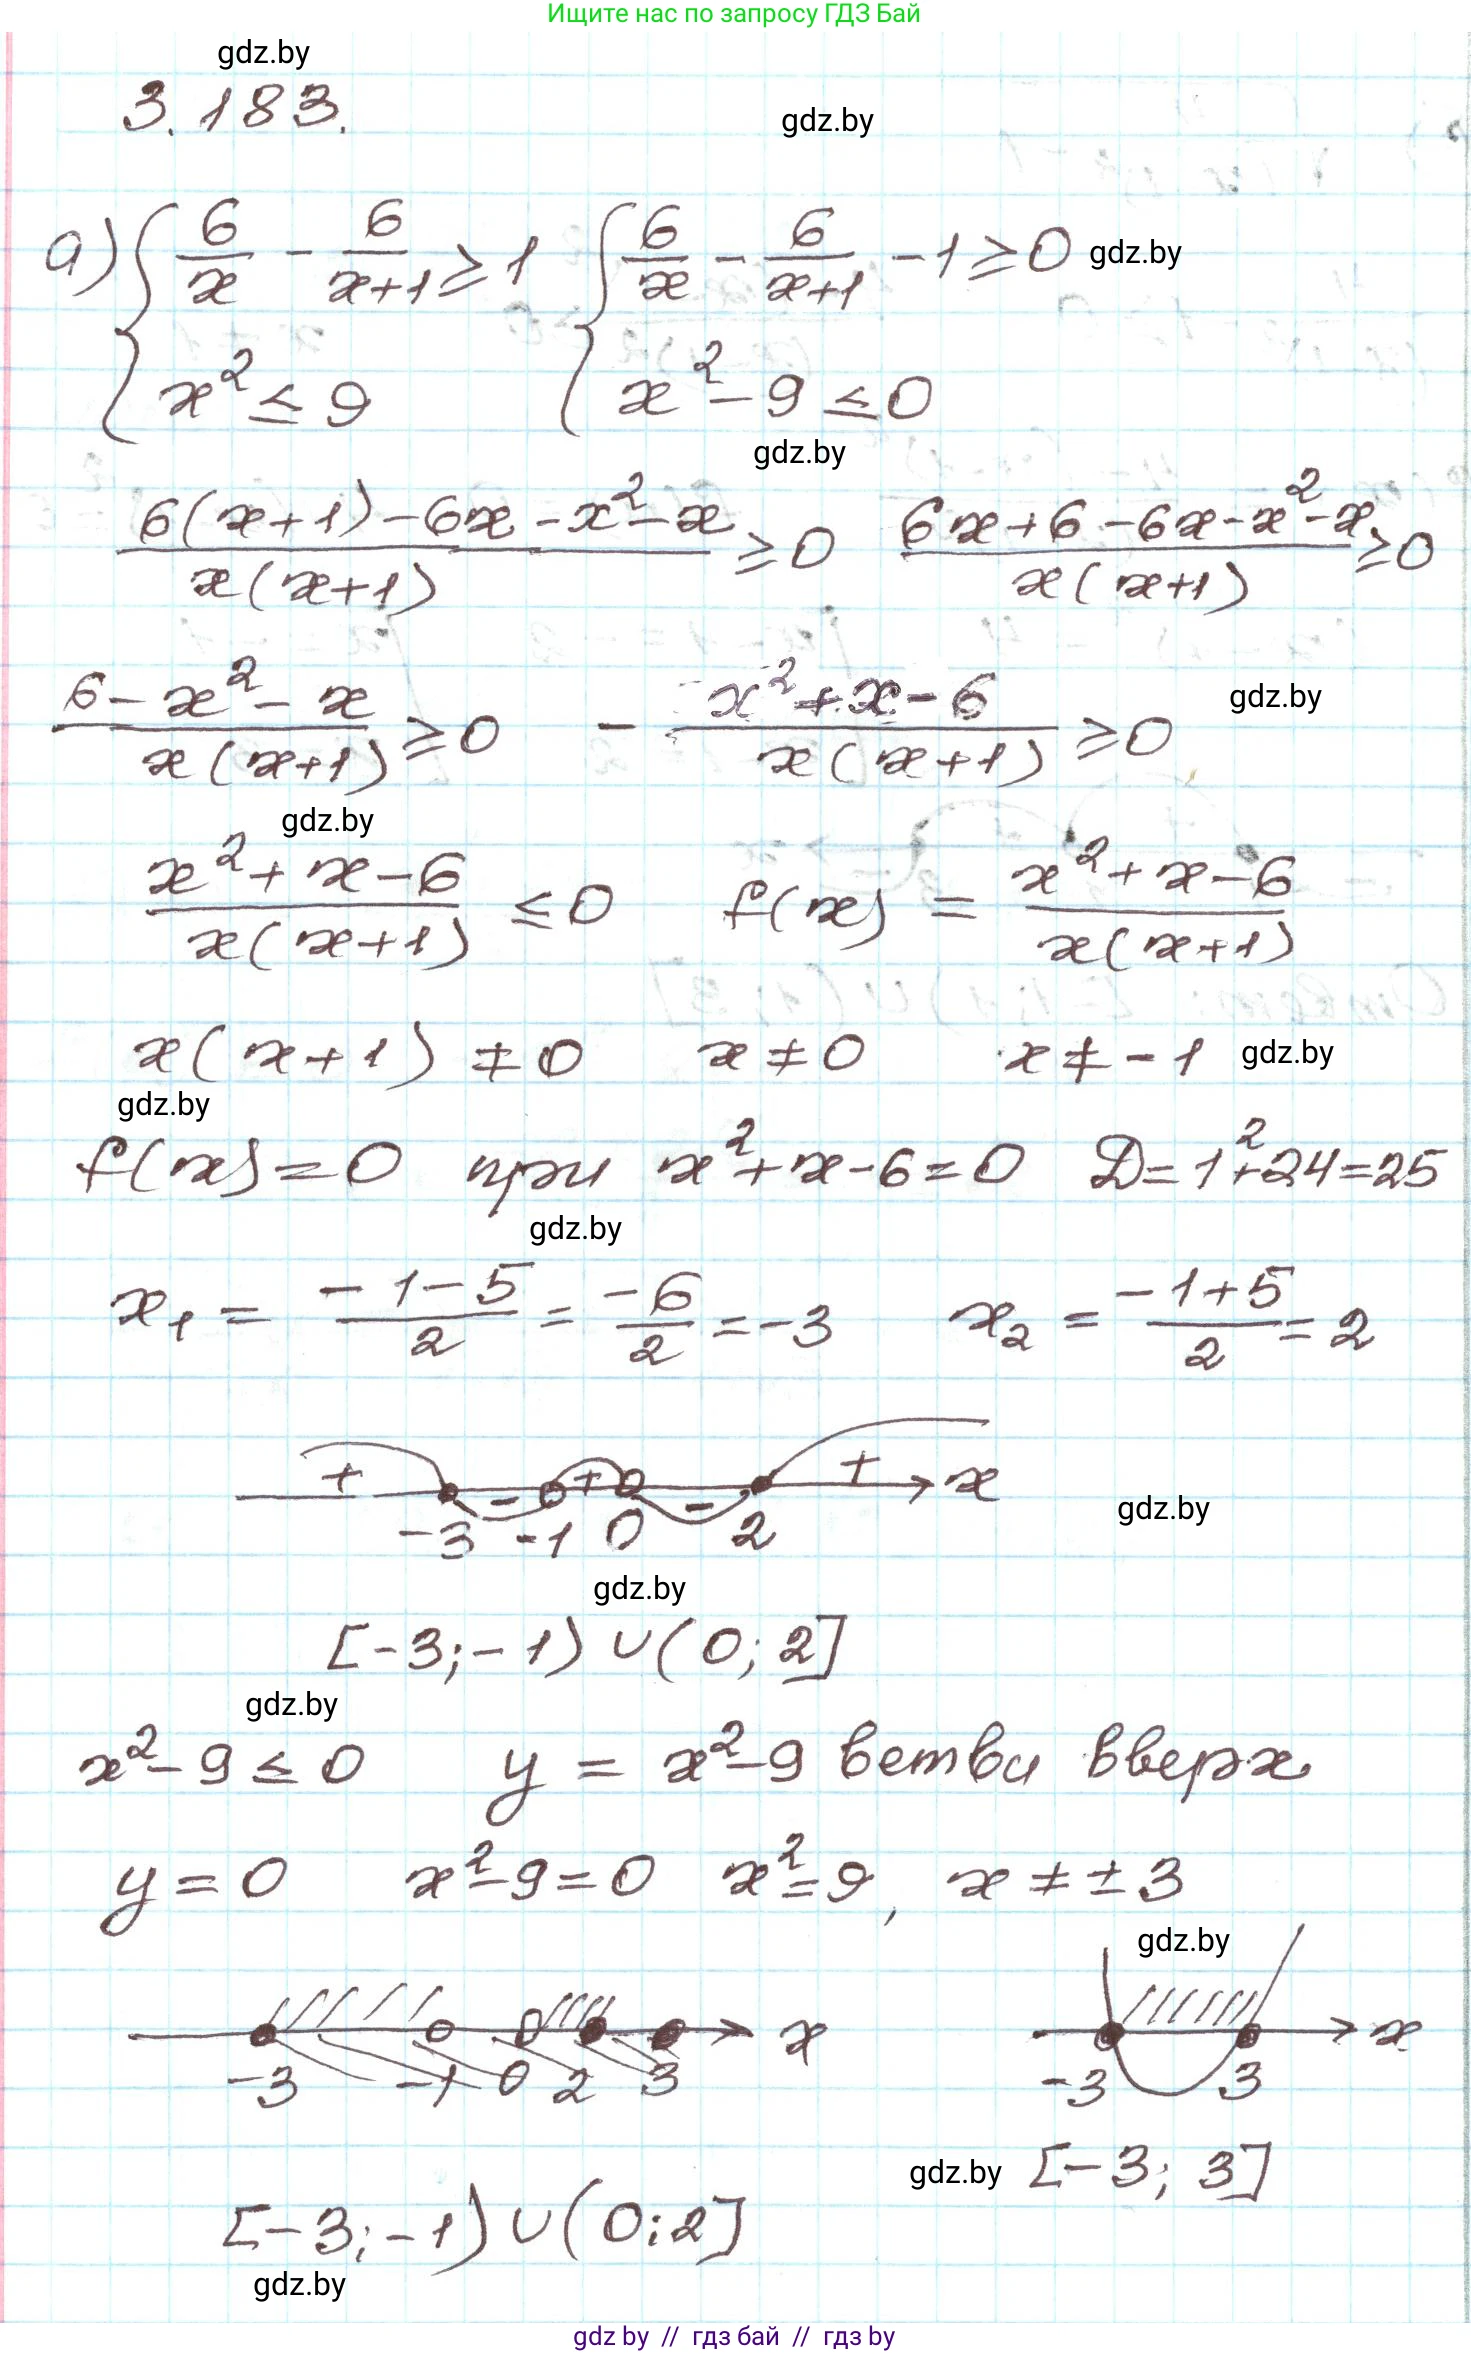 Ищите нас по запросу ГДЗ Бай
gdz.by
3.183.
gdz.by
а) { 6/x - 6/(x+1) ≥ 1 { 6/x - 6/(x+1) - 1 ≥ 0 gdz.by
x² ≤ 9 x² - 9 ≤ 0
gdz.by
(6(x+1) - 6x - x² - x)/(x(x+1)) ≥ 0 (6x + 6 - 6x - x² - x)/(x(x+1)) ≥ 0
(6 - x² - x)/(x(x+1)) ≥ 0 - (x² + x - 6)/(x(x+1)) ≥ 0 gdz.by
gdz.by
(x² + x - 6)/(x(x+1)) ≤ 0 f(x) = (x² + x - 6)/(x(x+1))
x(x+1) ≠ 0 x ≠ 0 x ≠ -1 gdz.by
gdz.by
f(x) = 0 при x² + x - 6 = 0 D = 1² + 24 = 25
gdz.by
x₁ = (-1-5)/2 = -6/2 = -3 x₂ = (-1+5)/2 = 2
+ - + - + x
-3 -1 0 2 gdz.by
gdz.by
[-3; -1) ∪ (0; 2]
gdz.by
x² - 9 ≤ 0 y = x² - 9 ветви вверх
y = 0 x² - 9 = 0 x² = 9, x ≠ ± 3
gdz.by
0 x x
-3 -1 0 2 3 -3 3
gdz.by [-3; 3]
[-3; -1) ∪ (0; 2]
gdz.by
gdz by // гдз бай // гдз by